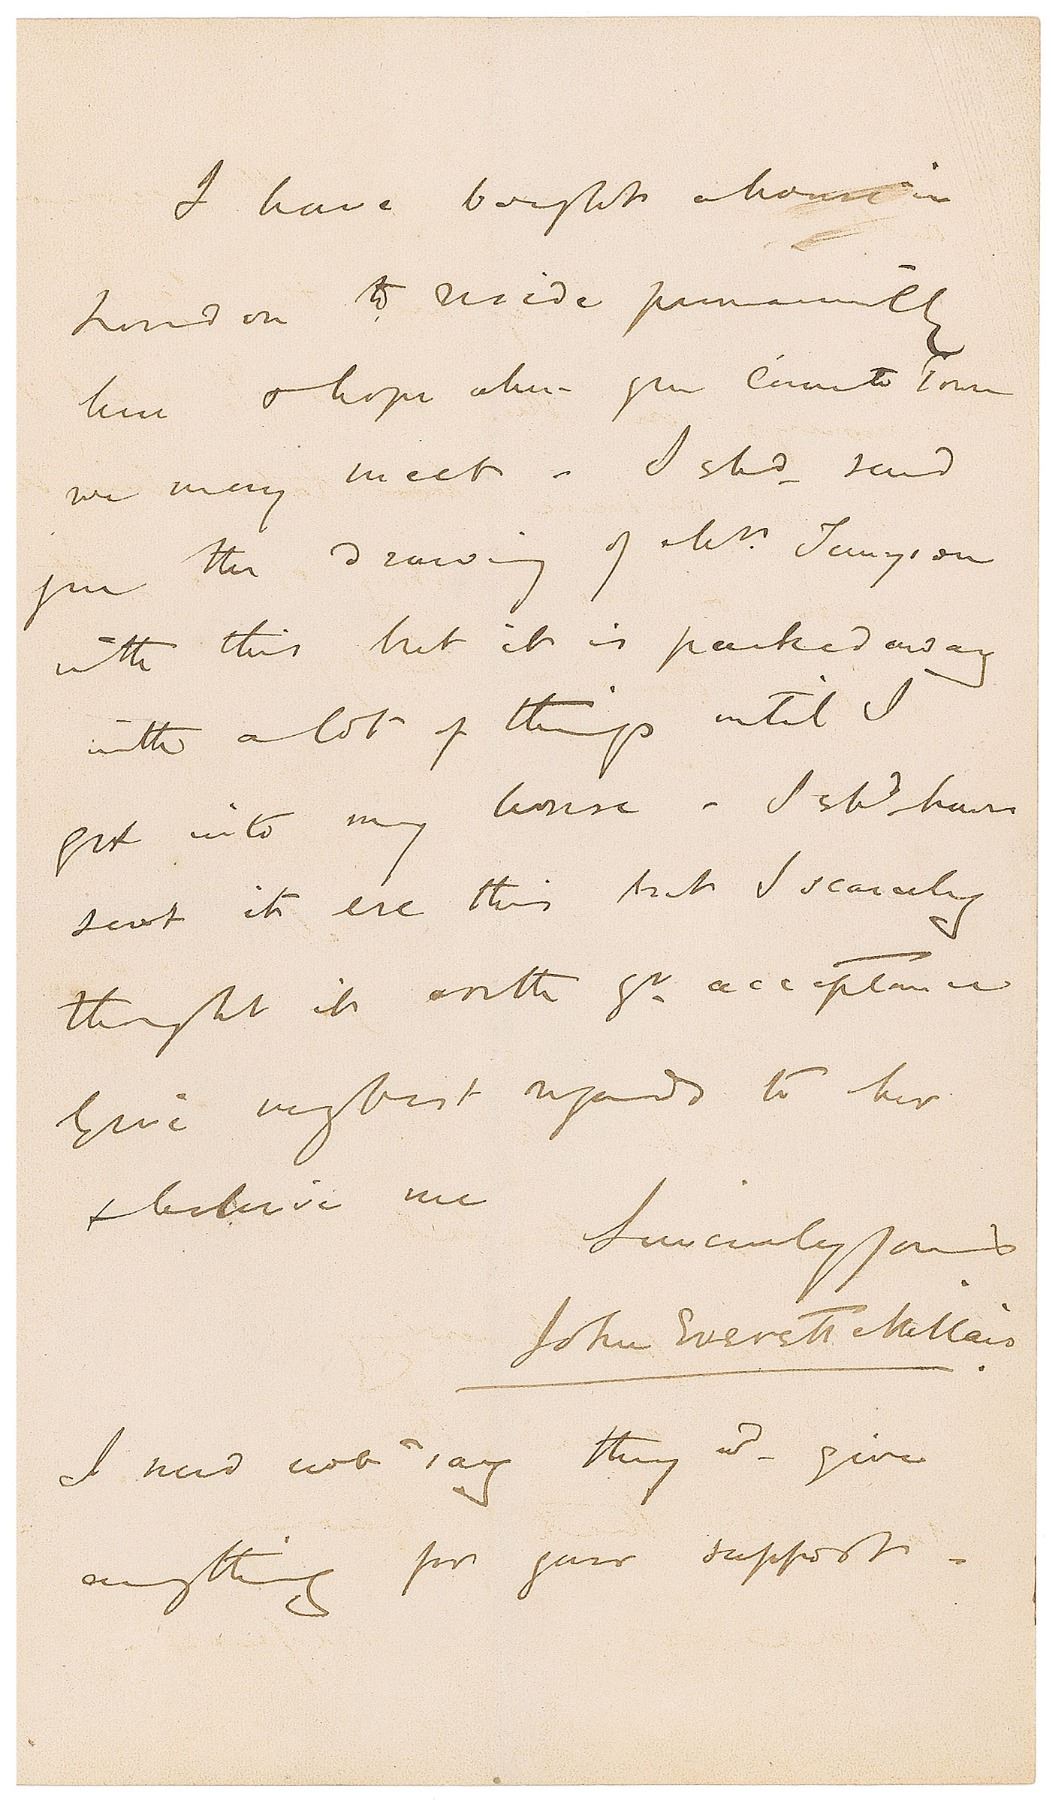 I have bought a house in
London to reside permanently
here & hope when you come to Town
we may meet - I shd. send
you the drawing of Mrs. Tennyson
with this but it is packed away
with a lot of things until I
get into my house - I shd have
sent it ere this but I scarcely
thought it worth yr. acceptance
Give my best regards to her
& believe me
Sincerely yours
John Everett Millais
I need not say they wd. give
anything for your support -